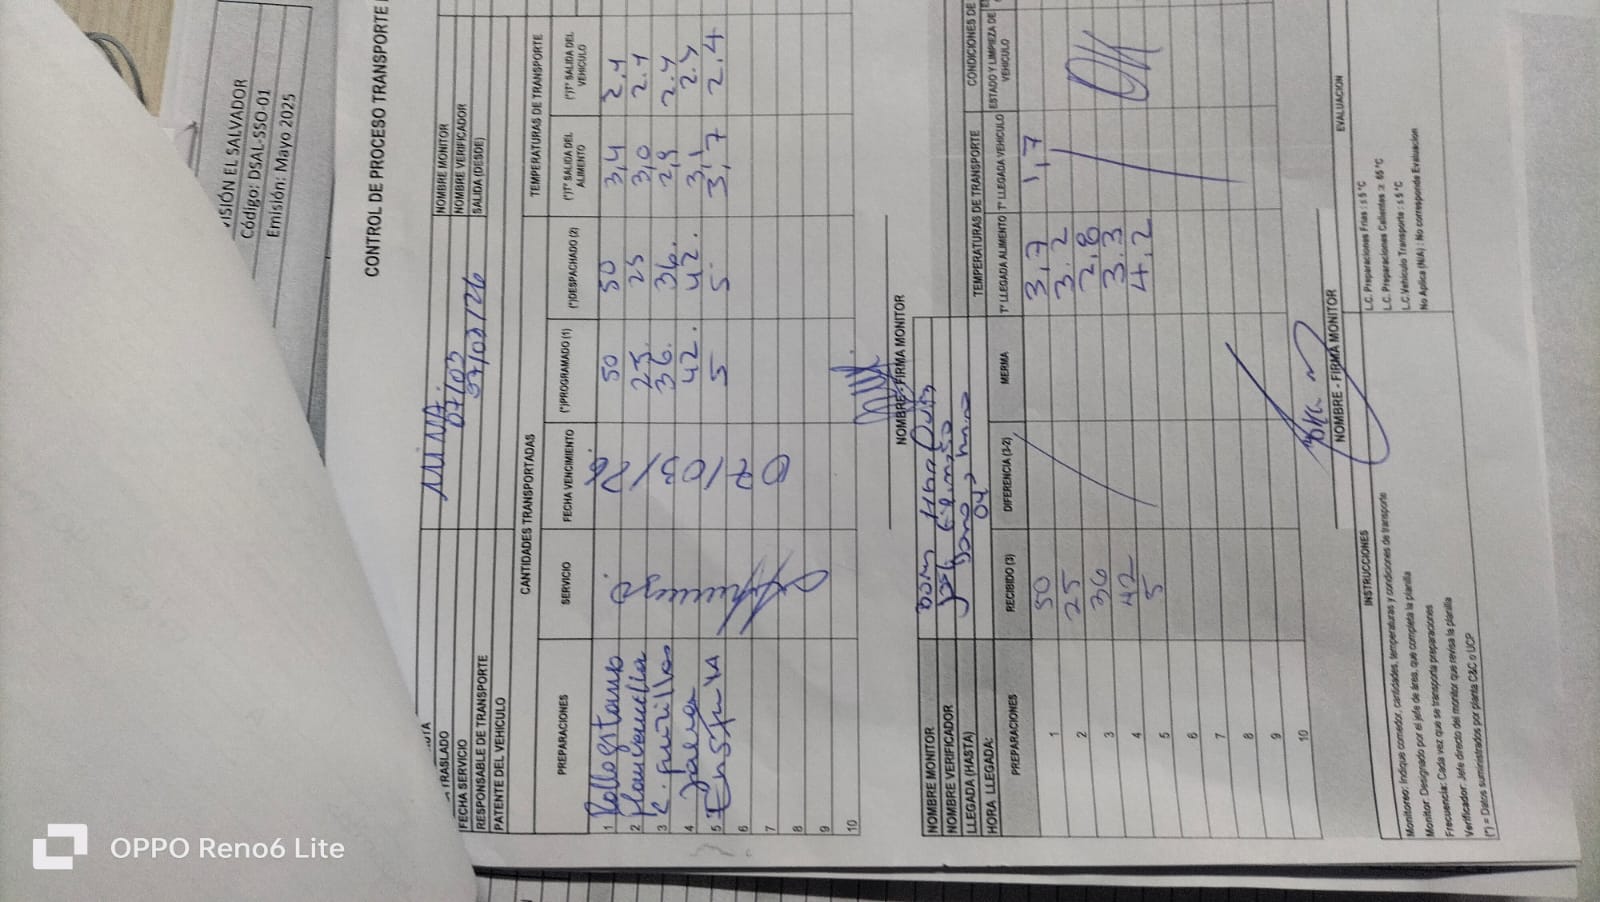 VISIÓN EL SALVADOR
Código: DSAL-SSO-01
Emisión: Mayo 2025
CONTROL DE PROCESO TRANSPORTE
TRASLADO MINA. NOMBRE MONITOR
FECHA SERVICIO 07/03 NOMBRE VERIFICADOR
RESPONSABLE DE TRANSPORTE SALIDA (DESDE)
PATENTE DEL VEHICULO
CANTIDADES TRANSPORTADAS TEMPERATURAS DE TRANSPORTE
PREPARACIONES SERVICIO FECHA VENCIMIENTO (*)PROGRAMADO (1) (*)DESPACHADO (2) (*)T° SALIDA DEL ALIMENTO (*)T° SALIDA DEL VEHICULO
1 50 50 3,4 2.4
2 25. 25 3,0 2.4
3 36. 36. 2,9 2.4
4 42. 42. 3,1 2.4
5 5 5 3,7 2.4
6
7
8
9
10
NOMBRE - FIRMA MONITOR
NOMBRE MONITOR
NOMBRE VERIFICADOR
LLEGADA (HASTA)
HORA LLEGADA:
TEMPERATURAS DE TRANSPORTE CONDICIONES DE
PREPARACIONES RECIBIDO (3) DIFERENCIA (3-2) MERMA T° LLEGADA ALIMENTO T° LLEGADA VEHICULO ESTADO Y LIMPIEZA DE VEHICULO
1 50 3,7 1,7
2 25 3.2
3 36 2,8
4 42 3.3
5 5 4,2
6
7
8
9
10
NOMBRE - FIRMA MONITOR
INSTRUCCIONES EVALUACION
Monitoreo: Indique comedor, cantidades, temperaturas y condiciones de transporte
Monitor: Designado por el jefe de área, que completa la planilla
Frecuencia: Cada vez que se transporta preparaciones
Verificador: Jefe directo del monitor que revisa la planilla
(*) = Datos suministrados por planta C&C o UCP
L.C. Preparaciones Frías : ≤ 5 °C
L.C. Preparaciones Calientes ≥ 65 °C
L.C. Vehículo Transporte : ≤ 5 °C
No Aplica (N/A) : No corresponde Evaluación
OPPO Reno6 Lite